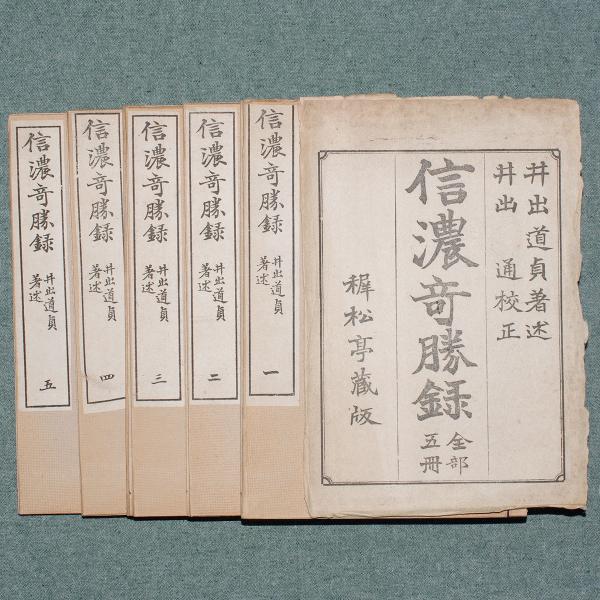 井出道貞著述
井出 通校正
信濃奇勝録
全部
五冊
穉松亭蔵版
信濃奇勝録
井出道貞
著述
一
信濃奇勝録
井出道貞
著述
二
信濃奇勝録
井出道貞
著述
三
信濃奇勝録
井出道貞
著述
四
信濃奇勝録
井出道貞
著述
五